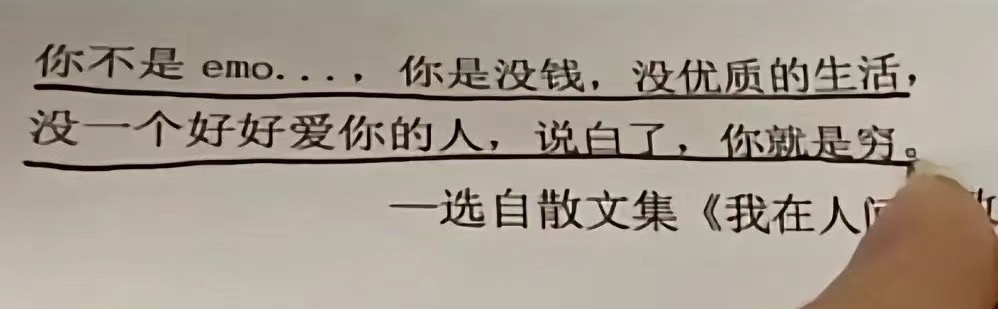 你不是 emo...，你是没钱，没优质的生活，
没一个好好爱你的人，说白了，你就是穷。
—选自散文集《我在人间